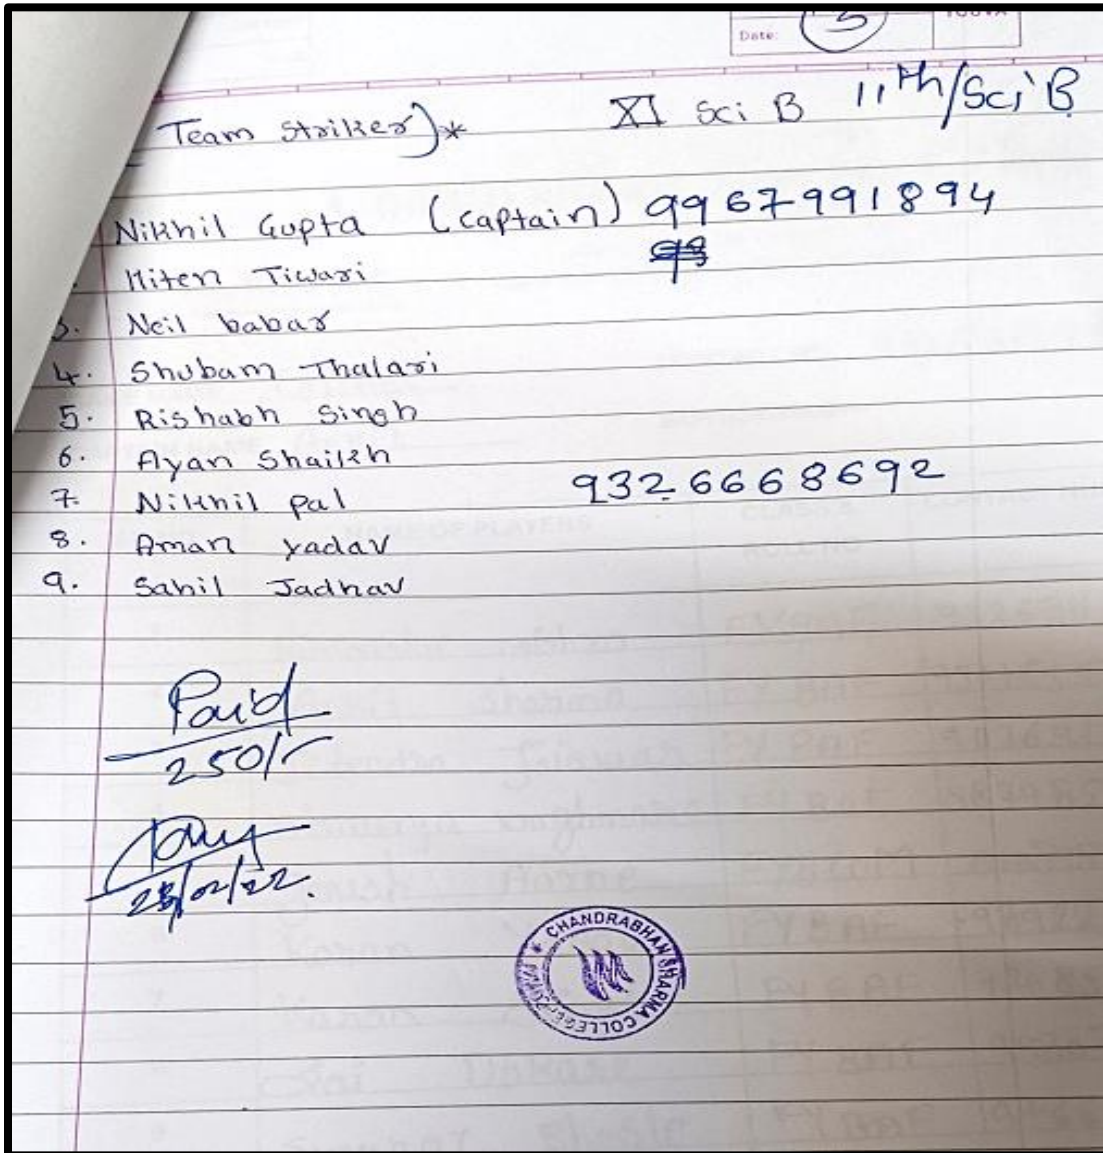 Date: 3
Team Striker)* XI Sci B 11th/Sci B
Nikhil Gupta (captain) 99679 91894
Hiten Tiwari
3. Neil babar
4. Shubam Thalari
5. Rishabh Singh
6. Ayan Shaikh
7. Nikhil Pal 9326668692
8. Aman yadav
9. Sahil Jadhav
Paid
250/-
CHANDRABHAN SHARMA COLLEGE